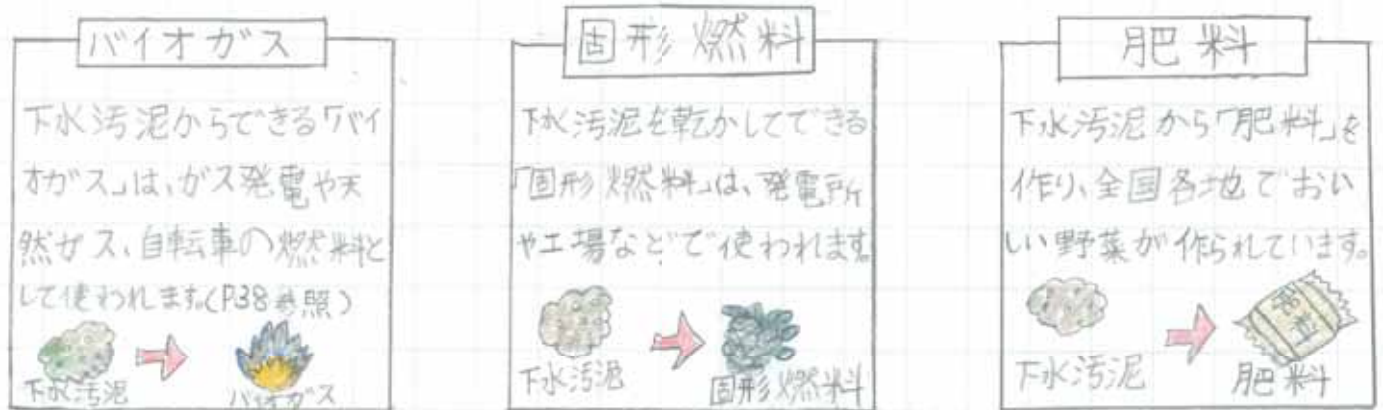 バイオガス
下水汚泥からできる「バイ
オガス」は、ガス発電や天
然ガス、自転車の燃料と
して使われます。(P38参照)
下水汚泥
バイオガス
固形燃料
下水汚泥を乾かしてできる
「固形燃料」は、発電所
や工場などで使われます。
下水汚泥
固形燃料
肥料
下水汚泥から「肥料」を
作り、全国各地でおい
しい野菜が作られています。
下水汚泥
肥料